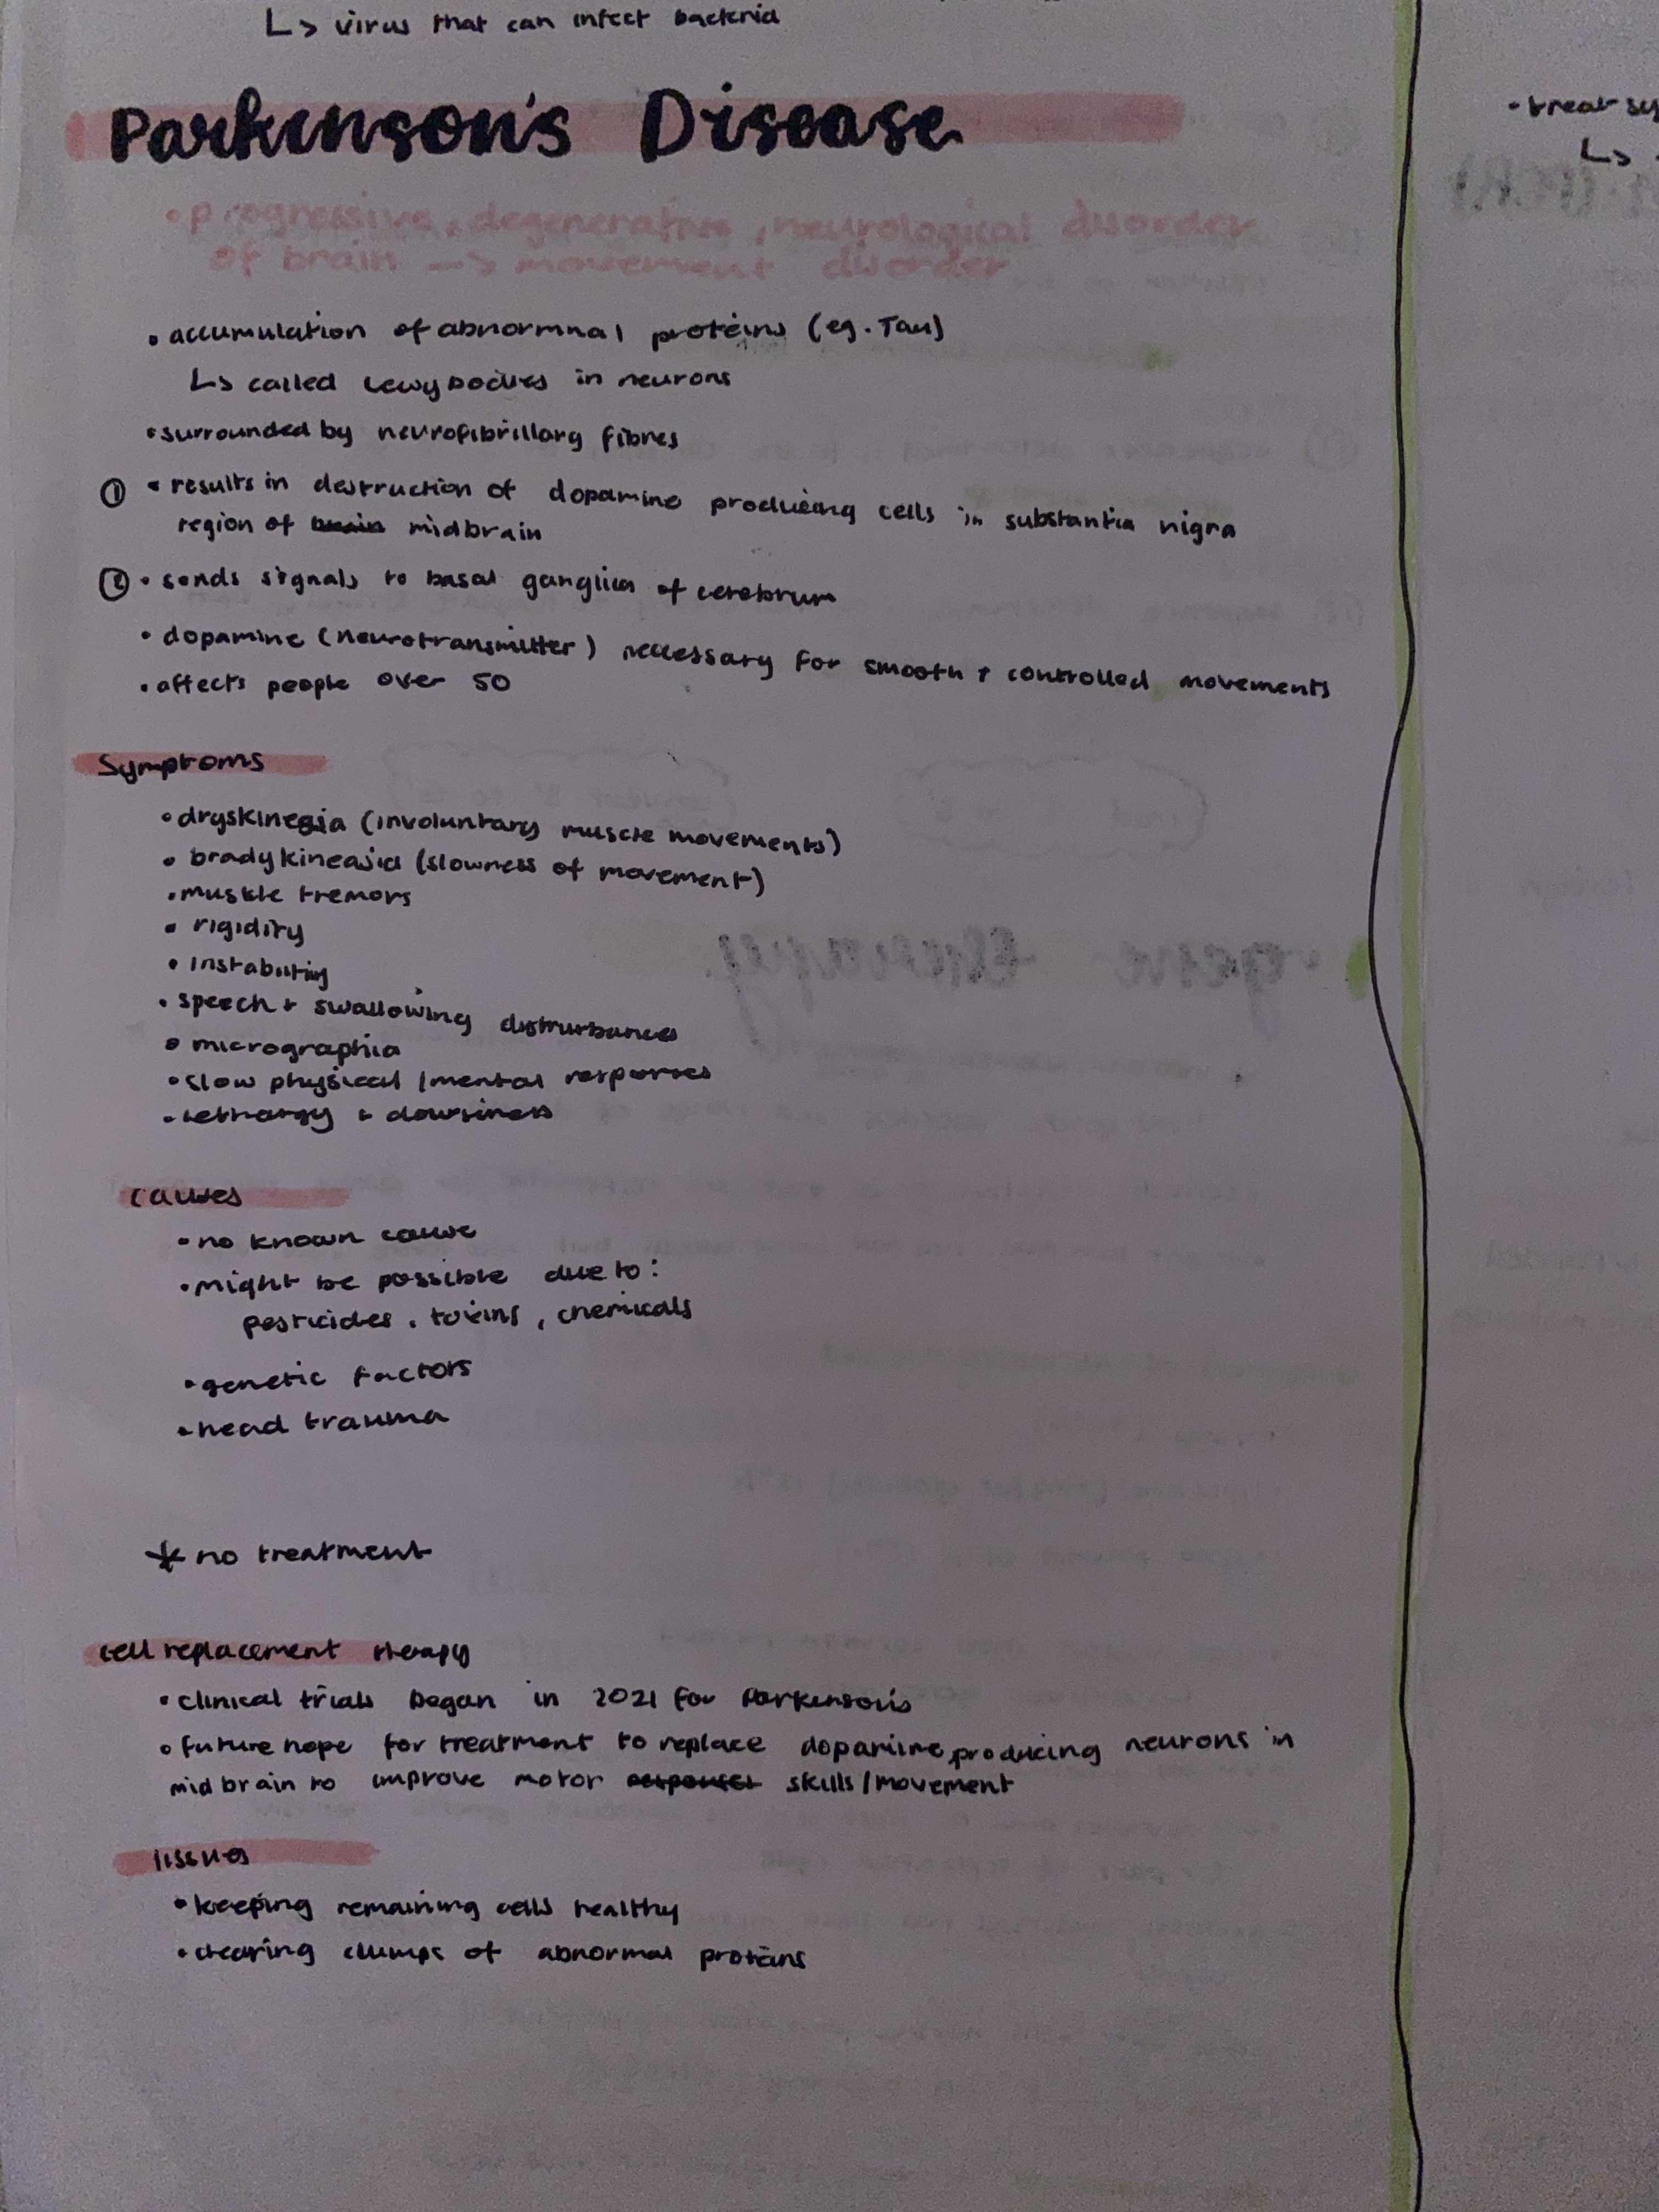 ↳ virus that can infect bacteria
Parkinson's Disease
• progressive, degenerative, neurological disorder
of brain --> movement disorder
• accumulation of abnormnal proteins (eg. Tau)
↳ called Lewy bodies in neurons
• surrounded by neurofibrillary fibres
① • results in destruction of dopamine producing cells in substantia nigra
region of brain midbrain
② • sends signals to basal ganglia of cerebrum
• dopamine (neurotransmitter) necessary for smooth + controlled movements
• affects people over 50
Symptoms
• dryskinesia (involuntary muscle movements)
• bradykineasia (slowness of movement)
• muskle tremors
• rigidity
• instability
• speech + swallowing disturbances
• micrographia
• slow physical / mental responses
• lethargy + dowsiness
causes
• no known cause
• might be possible due to:
pesticides, toxins, chemicals
• genetic factors
• head trauma
* no treatment
cell replacement therapy
• clinical trials began in 2021 for Parkinson's
• future hope for treatment to replace dopamine producing neurons in
midbrain to improve motor responses skills/movement
issues
• keeping remaining cells healthy
• clearing clumps of abnormal proteins
• treat
↳